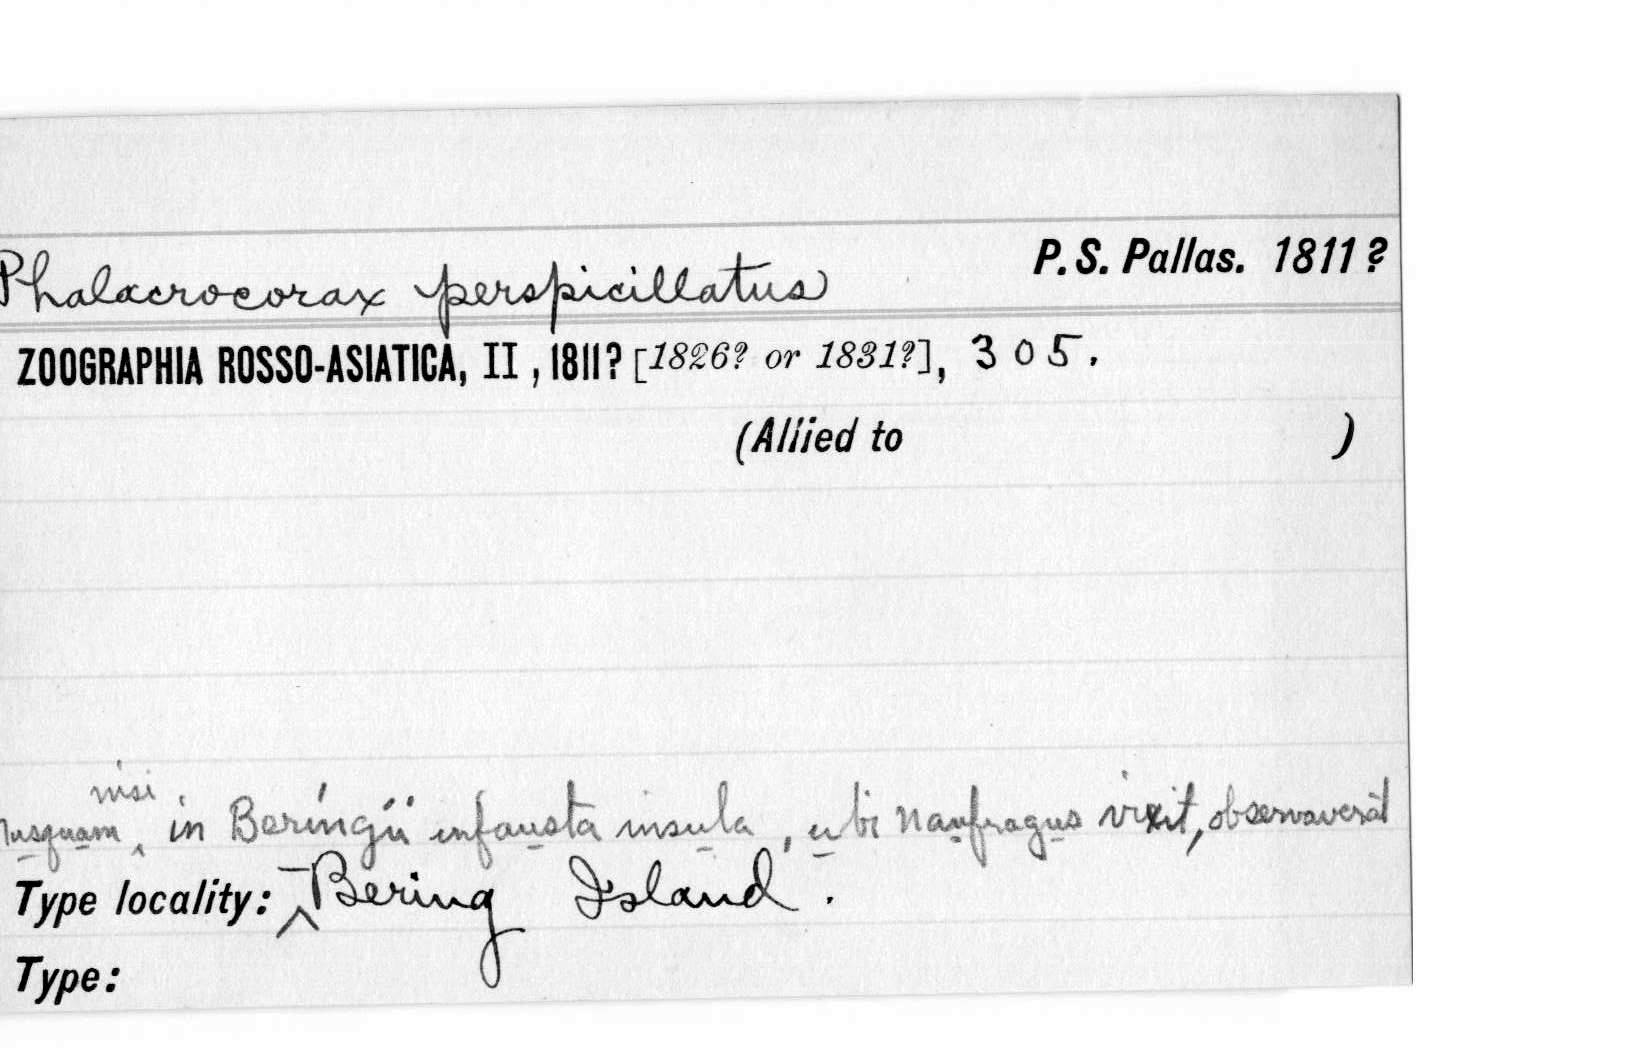 Phalacrocorax perspicillatus P. S. Pallas. 1811?
ZOOGRAPHIA ROSSO-ASIATICA, II, 1811? [1826? or 1831?], 305.
(Allied to )
nisi
nusquam ‸ in Beringii infausta insula, ubi naufragus vixit, observaverat
Type locality: ‸ Bering Island.
Type: